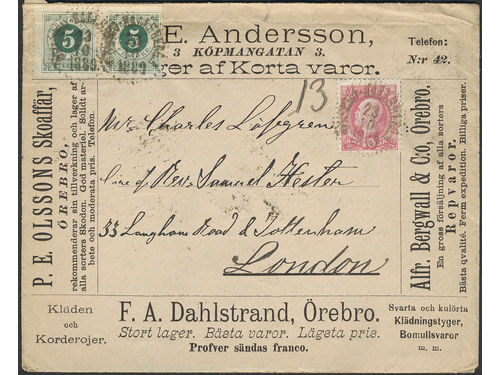 E. Andersson,
3 KÖPMANGATAN 3.
ger af Korta varor.
Telefon:
N:r 42.
5
5
1889
13
10
P. E. OLSSONS Skoaffär,
ÖREBRO,
rekommenderar sin tillverkning och lager af
alla sorters Skodon. God materiel. Solidt ar-
bete och moderata pris. Telefon.
Mr. Charles Löfgren
Care of Rev. Samuel Hester
33 Langham Road S Tottenham
London
Alfr. Bergwall & C:o, Örebro.
En gross försäljning af alla sorters
Repvaror.
Bästa qvalité. Form expedition. Billiga priser.
Kläden
och
Korderojer.
F. A. Dahlstrand, Örebro.
Stort lager. Bästa varor. Lägsta pris.
Profver sändas franco.
Svarta och kulörta
Klädningstyger,
Bomullsvaror
m. m.